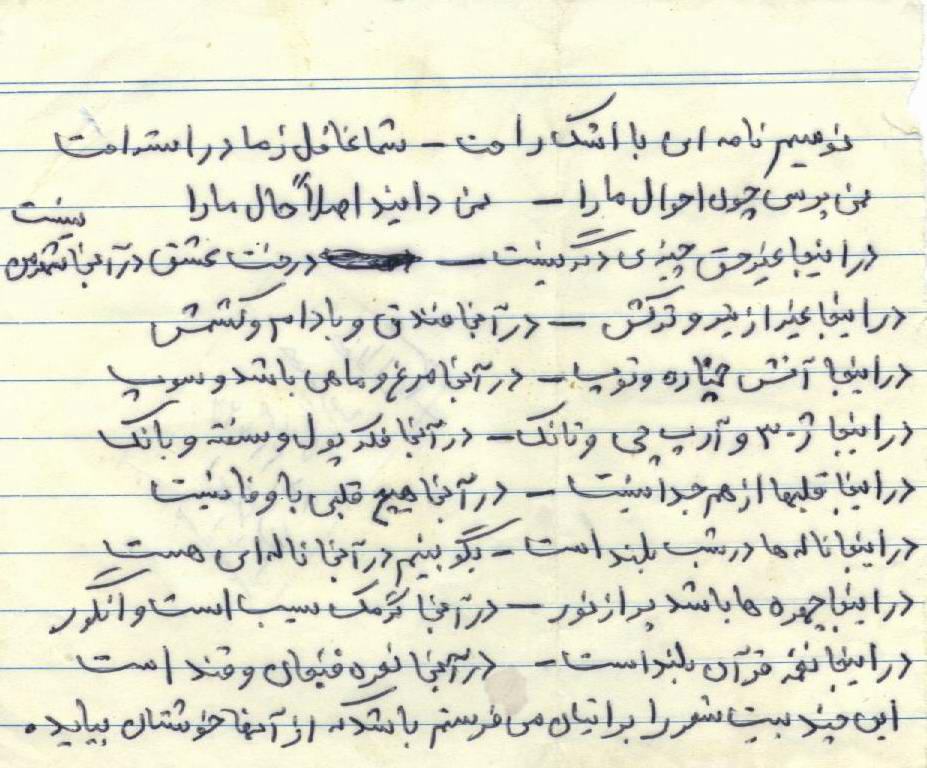 نویسم نامه ای با اشک راحت - شما غافل ز ما در استراحت
نمی پرسی چون احوال ما را - نمی دانید اصلاً حال ما را
در اینجا غیر حق چیزی دگر نیست - درخت عشق در آنجا نیست
در اینجا غیر از تیر و ترکش - در آنجا فندق و بادام و کشمش
در اینجا آتش خمپاره و توپ - در آنجا مرغ و ماهی باشد و سوپ
در اینجا ژ-۳ و آر پی جی و تانک - در آنجا فکر پول و سفته و بانک
در اینجا قلبها از هم جدا نیست - در آنجا هیچ قلبی با وفا نیست
در اینجا ناله ها در شب بلند است - بگو بینم در آنجا ناله ای هست
در اینجا چهره ها باشد پر از نور - در آنجا سیب است و انگور
در اینجا نغمه قرآن بلند است - در آنجا نعره فنجان و قند است
این چند بیت شعر را برایتان می فرستم باشد که از آنها خوشتان بیاید.